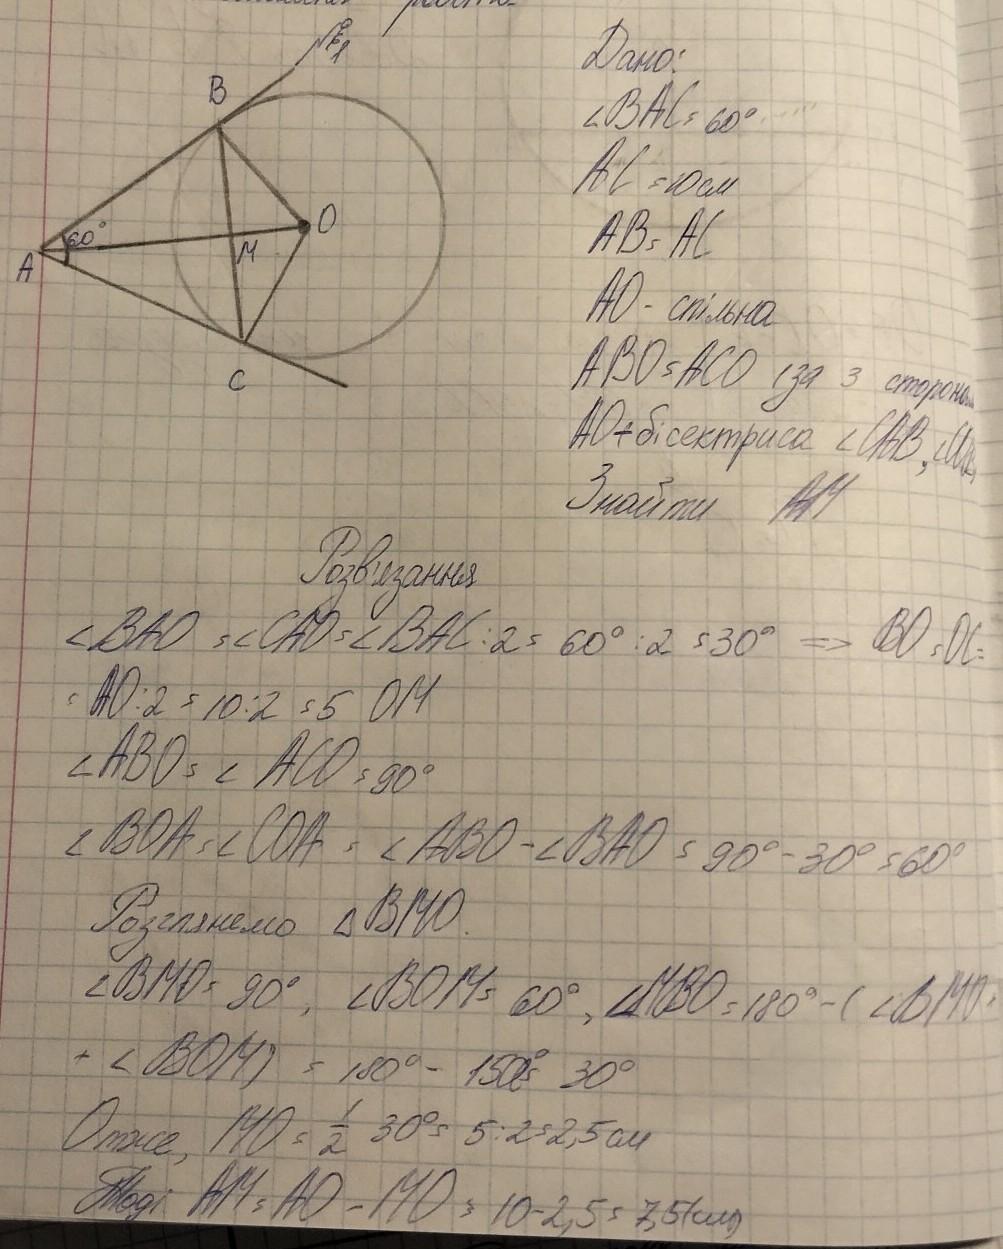 B
60°
A
M
O
C
Дано:
∠BAC = 60°
AC = 10 см
AB = AC
AO - спільна
ABO = ACO (за 3 сторонами
AO + бісектриса ∠CAB,
Знайти AM
Розв'язання
∠BAO = ∠CAO = ∠BAC : 2 = 60° : 2 = 30° => BO = OC =
= AO : 2 = 10 : 2 = 5 OM
∠ABO = ∠ACO = 90°
∠BOA = ∠COA = ∠ABO - ∠BAO = 90° - 30° = 60°
Розглянемо △BMO.
∠BMO = 90°, ∠BOM = 60°, ∠MBO = 180° - (∠BMO +
+ ∠BOM) = 180° - 150° = 30°
Отже, MO = 1/2 30° = 5 : 2 = 2,5 см
Тоді AM = AO - MO = 10 - 2,5 = 7,5 (см)